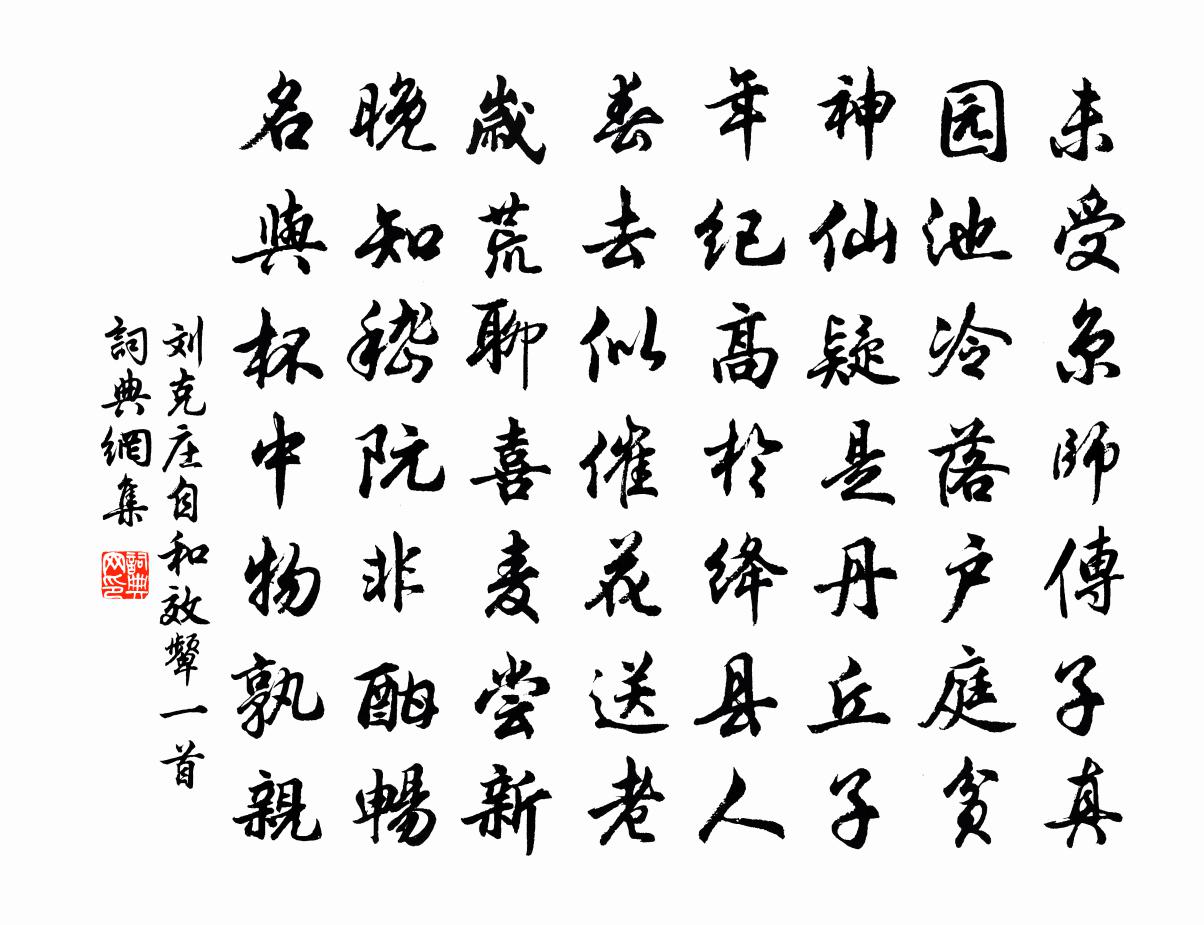 未受京師傳子真
园池冷落户庭貧
神仙疑是丹丘子
年纪高於绛县人
春去似催花送老
歲荒聊喜麦尝新
晚知嵇阮非酣暢
名與杯中物孰親
刘克庄自和效颦一首
詞典網集
詞典
网印